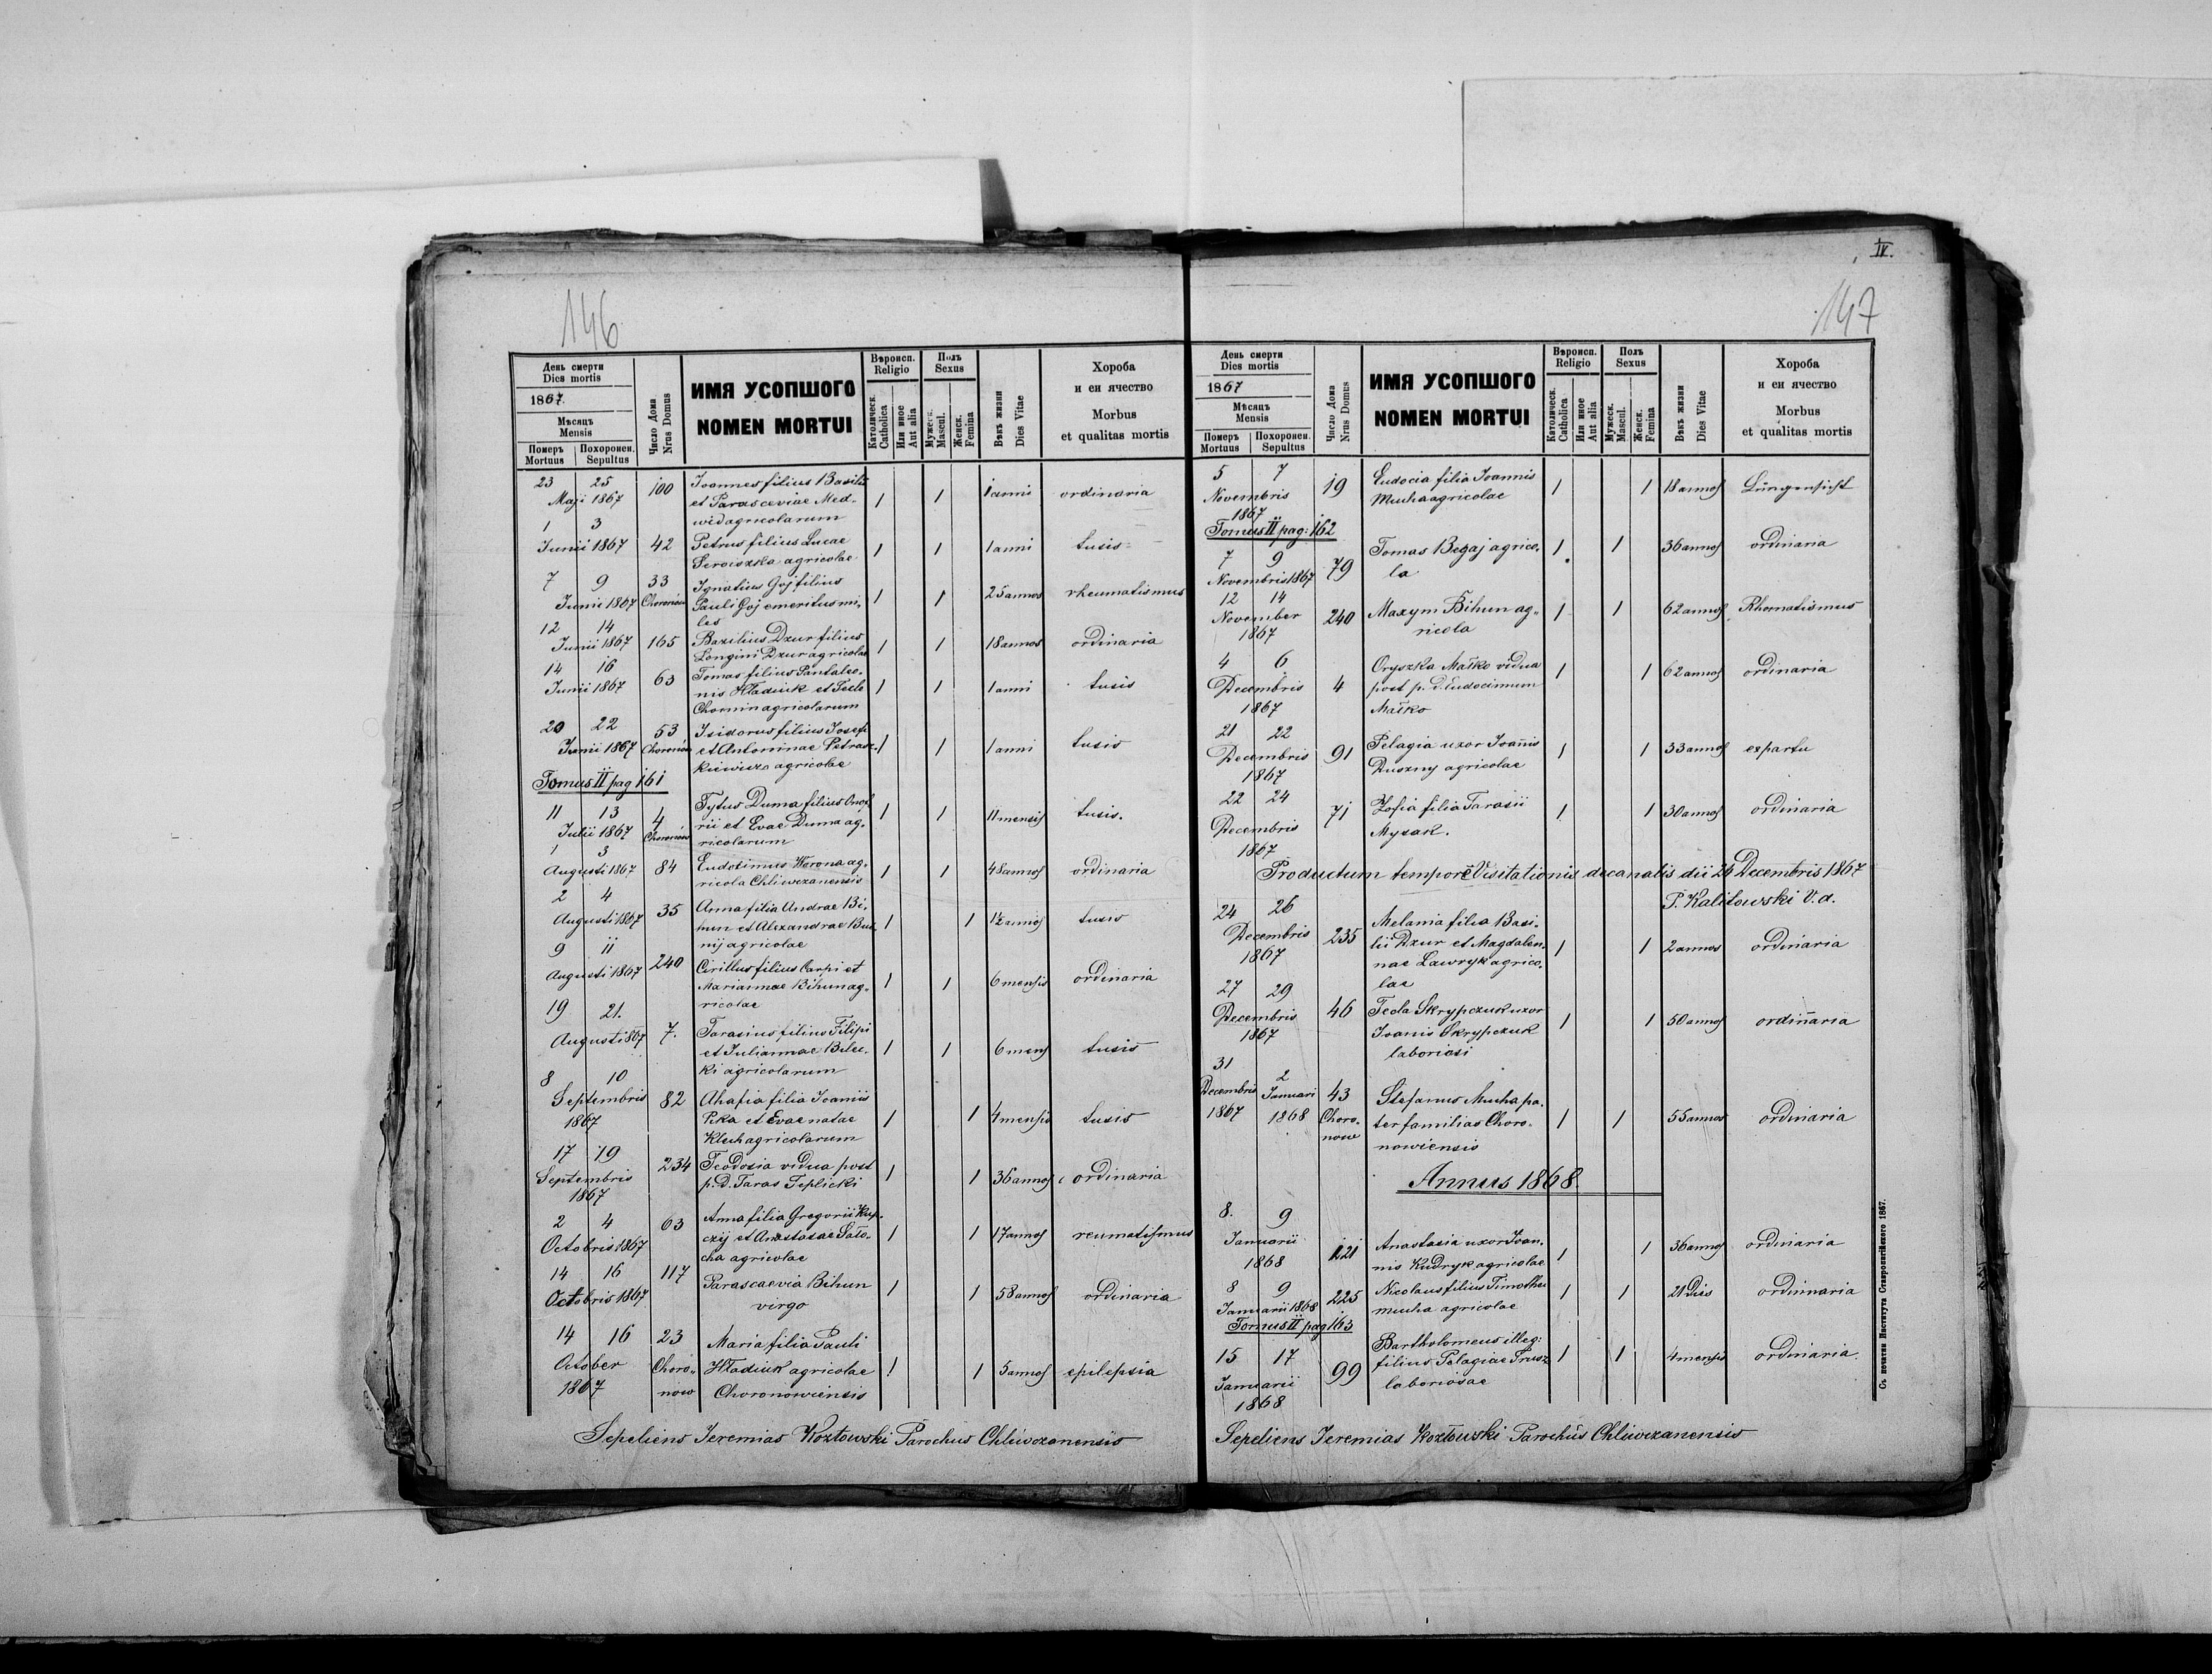 146
День смерти
Dies mortis
1867.
Мѣсяць
Mensis
Померъ Похоронен.
Mortuus Sepultus
Число Дома
Nrus Domus
ИМЯ УСОПШОГО
NOMEN MORTUI
Вѣроисп.
Religio
Католическ.
Catholica
Или иное
Aut alia
Полъ
Sexus
Мужеск.
Mascul.
Женск.
Femina
Вѣкъ жизни
Dies Vitae
Хороба
и еи ячество
Morbus
et qualitas mortis
23 25 100 Joannes filius Basilii
Maji 1867 et Parasceviae Med- 1 1 1 anni ordinaria
wid agricolarum
1 3
Junii 1867 42 Petrus filius Lucae 1 1 1 anni tusis
Serowszka agricolae
7 9 33 Ignatius Goj filius
Junii 1867 Pauli Goj emeritus mi- 1 1 25 annos rheumatismus
les
12 14
Junii 1867 165 Bazilius Dzur filius 1 1 18 annos ordinaria
Longini Dzur agricolae
14 16 Tomas filius Pantaleo-
Junii 1867 63 nis Hładiuk et Tecle 1 1 1 anni tusis
Chomin agricolarum
20 22 53 Isidorus filius Josefi
Junii 1867 et Antoninae Petrasz- 1 1 1 anni tusis
kiewicza agricolae
Tomus II pag 161
11 13 4 Tytus Duma filius Onof-
Julii 1867 rii et Evae Duma ag- 1 1 11 mensis tusis.
ricolarum
1 3
Augusti 1867 84 Eudosimus Worona ag- 1 1 48 annos ordinaria
ricola Chliwczanensis
2 4 35 Anna filia Andrae Bi-
Augusti 1867 hun et Alexandrae 1 1 1½ annos tusis
agricolae
9 11
Augusti 1867 240 Cirillus filius Carpi et
Mariannae Bihun ag- 1 1 6 mensis ordinaria
ricolae
19 21.
Augusti 867 7. Tarasius filius Filipi
et Juliannae Bilec- 1 1 6 mens tusis
ki agricolarum
8 10
Septembris 82 Ahafia filia Joannis
1867 Pika et Evae natae 1 1 4 mensis tusis
Kluh agricolarum
17 19 234 Teodosia vidua post 1 1 36 annos ordinaria
Septembris p. d. Taras Teplicki
1867
2 4 63 Anna filia Gregorii Kup-
Octobris 1867 czij et Anastasae Sało- 1 1 17 annos reumatismus
cha agricolae
14 16 117 Parascaevia Bihun 1 1 58 annos ordinaria
Octobris 1867 virgo
14 16 23 Maria filia Pauli
October Choro- Hładiuk agricolae 1 1 5 annos epilepsia
1867 now Choronowiensis
Sepeliens Jeremias Kozłowski Parochus Chliwczanensis
IV.
147
День смерти
Dies mortis
1867
Мѣсяць
Mensis
Померъ Похоронен.
Mortuus Sepultus
Число Дома
Nrus Domus
ИМЯ УСОПШОГО
NOMEN MORTUI
Вѣроисп.
Religio
Католическ.
Catholica
Или иное
Aut alia
Полъ
Sexus
Мужеск.
Mascul.
Женск.
Femina
Вѣкъ жизни
Dies Vitae
Хороба
и еи ячество
Morbus
et qualitas mortis
5 7 19 Eudocia filia Joannis 1 1 18 annos Lungensicht
Novembris Mucha agricolae
1867
Tomus II pag: 162
7 9 79 Tomas Begaj agrico- 1 1 36 annos ordinaria
Novembris 1867 la
12 14
November 240 Maxym Bihun ag- 1 1 62 annos Rhomatismus
1867 ricola
4 6 Oryszka Małko vidua 1 1 62 annos ordinaria
Decembris 4 post p. d. Eudocimum
1867 Małko
21 22
Decembris 91 Pelagia uxor Joannis 1 1 33 annos ex partu
1867 Duszny agricolae
22 24
Decembris 71 Zofia filia Tarasii 1 1 30 annos ordinaria
1867 Mysak.
Productum tempore Visitationis decanalis dii 26 Decembris 1867
P. Kalitowski V.d.
24 26
Decembris 235 Melania filia Basi-
1867 lii Dzur et Magdalen- 1 1 2 annos ordinaria
nae Ławryk agrico-
lae
27 29
Decembris 46 Tecla Skrypczuk uxor 1 1 50 annos ordinaria
1867 Ioanis Skrypczuk
laboriosi
31 2
Decembris Januari 43 Stefanus Mucha pa-
1867 1868 Choro- ter familias Choro- 1 1 55 annos ordinaria
now nowiensis
Annus 1868.
8. 9
Januarii 121 Anastasia uxor Joan- 1 1 36 annos ordinaria
1868 nis Kudryk agricolae
8 9 225 Nicolaus filius Timothei 1 1 21 Dies ordinnaria
Januarii 1868 mucha agricolae
Tomus II pag 163
15 17 99 Bartholomeus illeg:
Januarii filius Pelagiae Prusz 1 1 4 mensis ordinaria.
1868 laboriosae
Sepeliens Jeremias Kozłowski Parochus Chliwczanensis
Съ печатни Института Ставропигійского 1867.